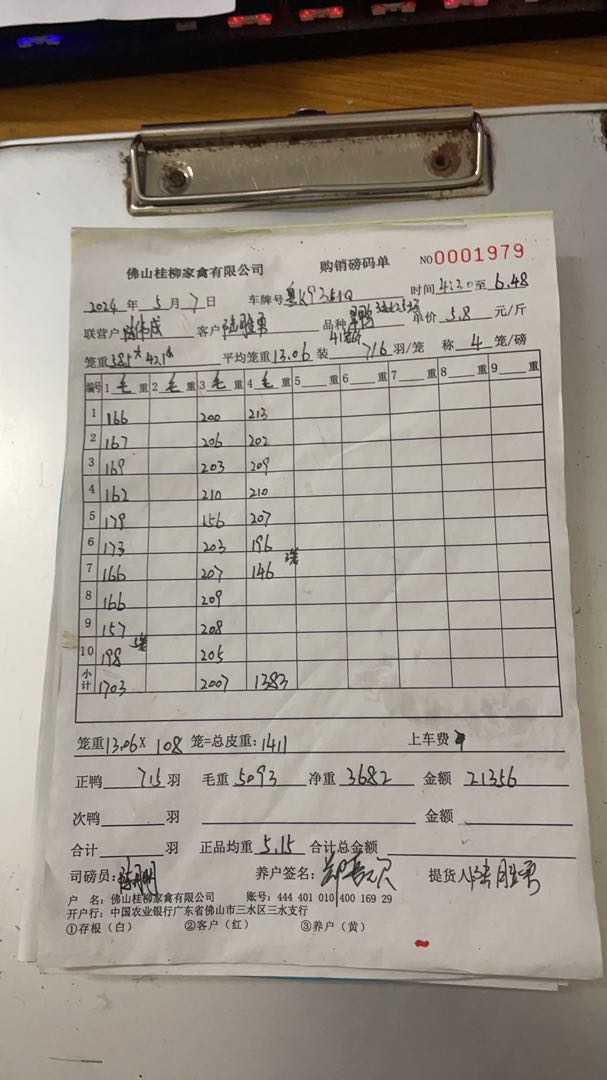 佛山桂柳家禽有限公司 购销磅码单 NO 0001979
2024 年 5 月 7 日 车牌号 粤K93 时间 4:20 至 6.48
联营户 客户 品种 单价 5.8 元/斤
笼重 平均笼重 13.06 装 7/6 羽/笼 称 4 笼/磅
编号 1 毛 重 2 毛 重 3 毛 重 4 毛 重 5 重 6 重 7 重 8 重 9 重
1 166 200 213
2 167 206 202
3 169 203 209
4 162 210 210
5 179 156 207
6 173 203 196
7 166 207 146
8 166 209
9 157 208
10 198 205
小计 1703 2007 1383
笼重 13.06 X 108 笼=总皮重: 1411 上车费
正鸭 715 羽 毛重 5093 净重 3682 金额 21356
次鸭 羽 金额
合计 羽 正品均重 5.15 合计总金额
司磅员: 养户签名: 提货人
户 名: 佛山桂柳家禽有限公司 账号: 444 401 010 400 169 29
开户行: 中国农业银行广东省佛山市三水区三水支行
①存根（白） ②客户（红） ③养户（黄）